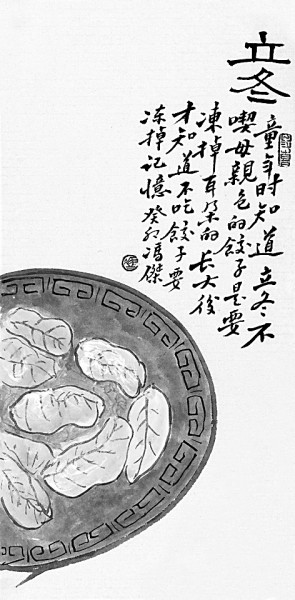 立冬
童年时知道立冬不
喫母親包的餃子是要
凍掉耳朵的长大後
才知道不吃餃子要
冻掉记憶癸卯冯傑